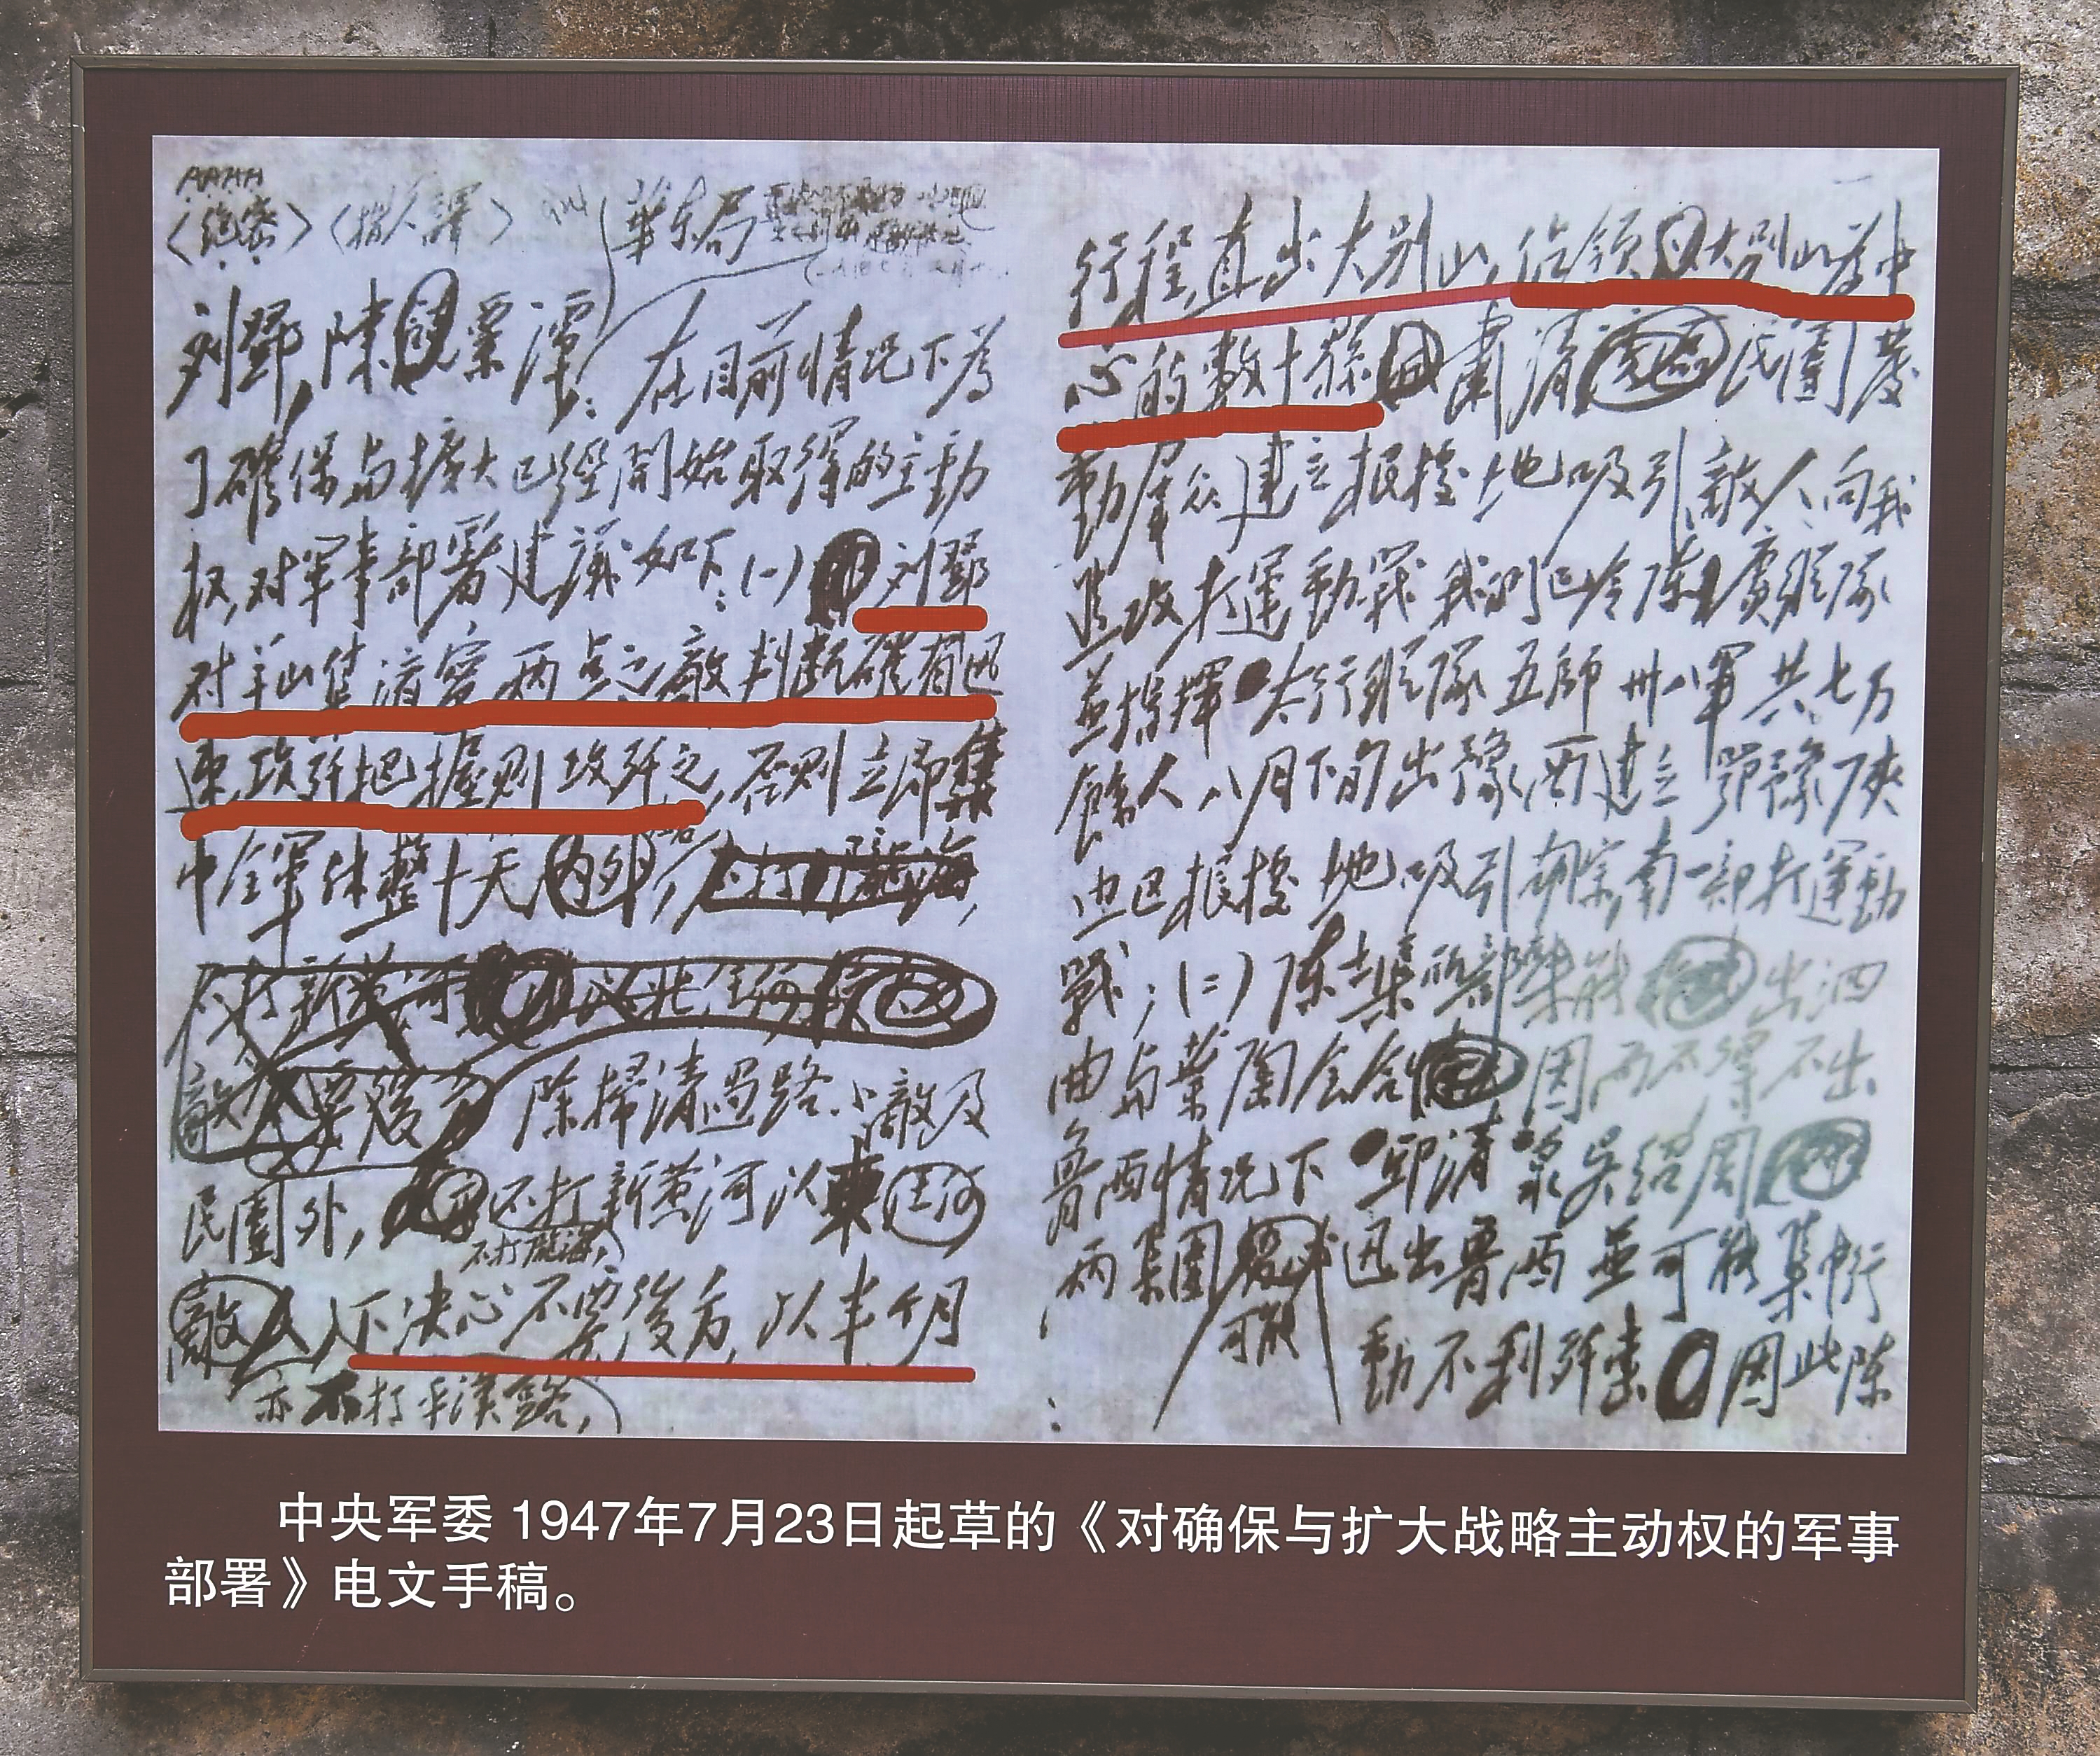 AAAA
〈絕密〉〈指人譯〉 華东局
刘鄧,陳粟譚:在目前情况下為
了確保与擴大已經開始取得的主動
权,对軍事部署建議如下:(一)刘鄧
对羊山集濟寧两点之敵判断確有迅
速攻歼把握则攻歼之,否则立即集
中全軍休整十天內外,
除掃清過路小敵及
民團外,不打新黄河以東
不打隴海,
下决心不要後方,以半个月
亦不打平漢路,
行程,直出大别山,佔領大别山為中
心的数十縣,肅清民團,發
動羣众,建立根據地,吸引敵人向我
進攻打運動戰,我們已令陳賡縱隊
並指揮太行縱隊五師卅八軍共七万
餘人八月下旬出豫西,建立鄂豫陝
边区根據地,吸引胡宗南一部打運動
戰;(二)陳士榘所部 出泗
曲与葉陶会合 因而不得不出
魯西情况下 邱清泉吳紹周
两集團 可能 迅出魯西並可能集中行
動不利歼擊 因此陳
中央军委 1947年7月23日起草的《对确保与扩大战略主动权的军事
部署》电文手稿。